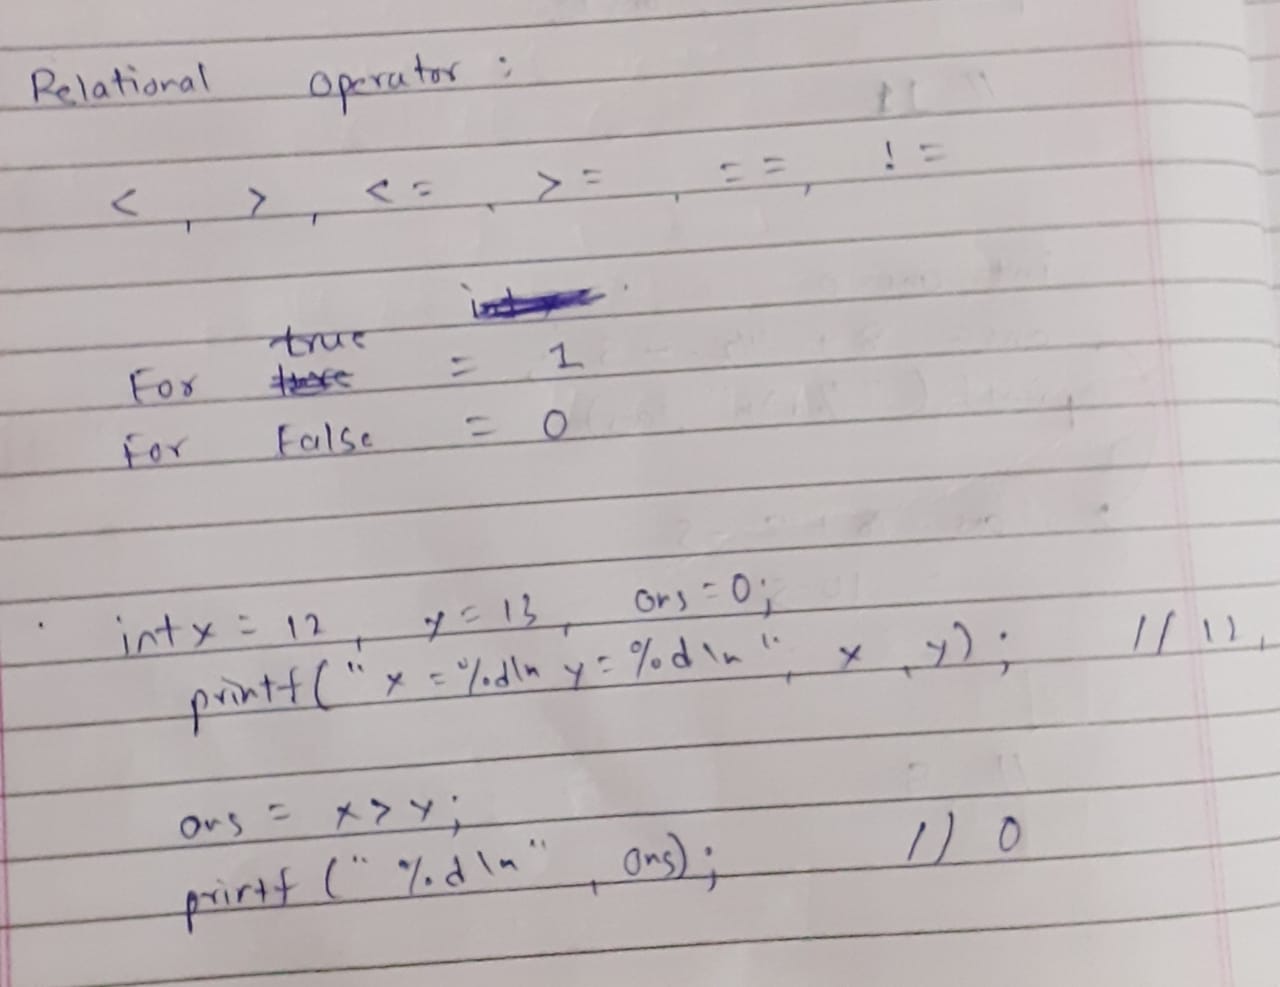 Relational operator :
< , > , <= , >= , == , !=
true
For = 1
For False = 0
int x = 12 , y = 13 , ans = 0;
printf(" x = %d\n y = %d\n " , x , y) ; //
ans = x > y ;
printf (" %d\n" , ans) ; // 0